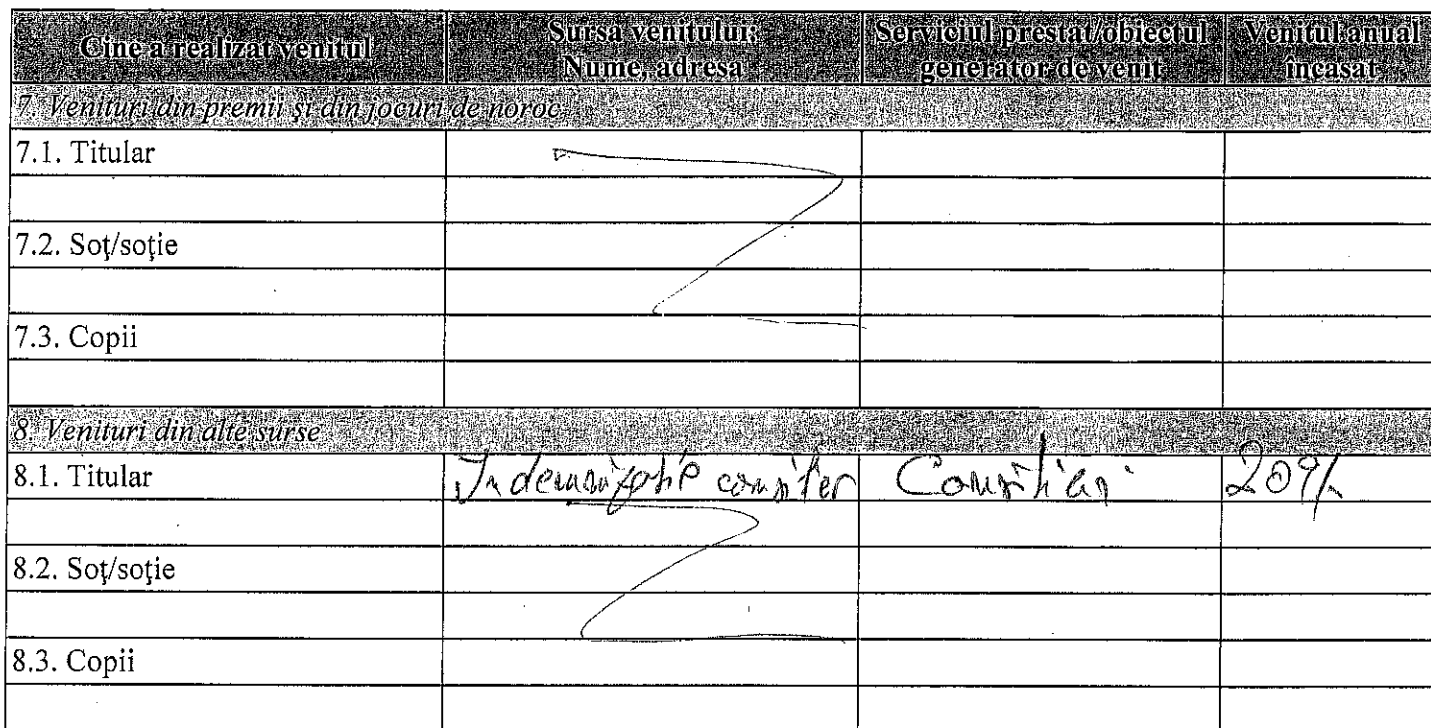 Cine a realizat venitul
Sursa venitului:
Nume, adresa
Serviciul prestat/obiectul
generator de venit
Venitul anual
încasat
7. Venituri din premii și din jocuri de noroc
7.1. Titular
7.2. Soţ/soţie
7.3. Copii
8. Venituri din alte surse
8.1. Titular
8.2. Soţ/soţie
8.3. Copii